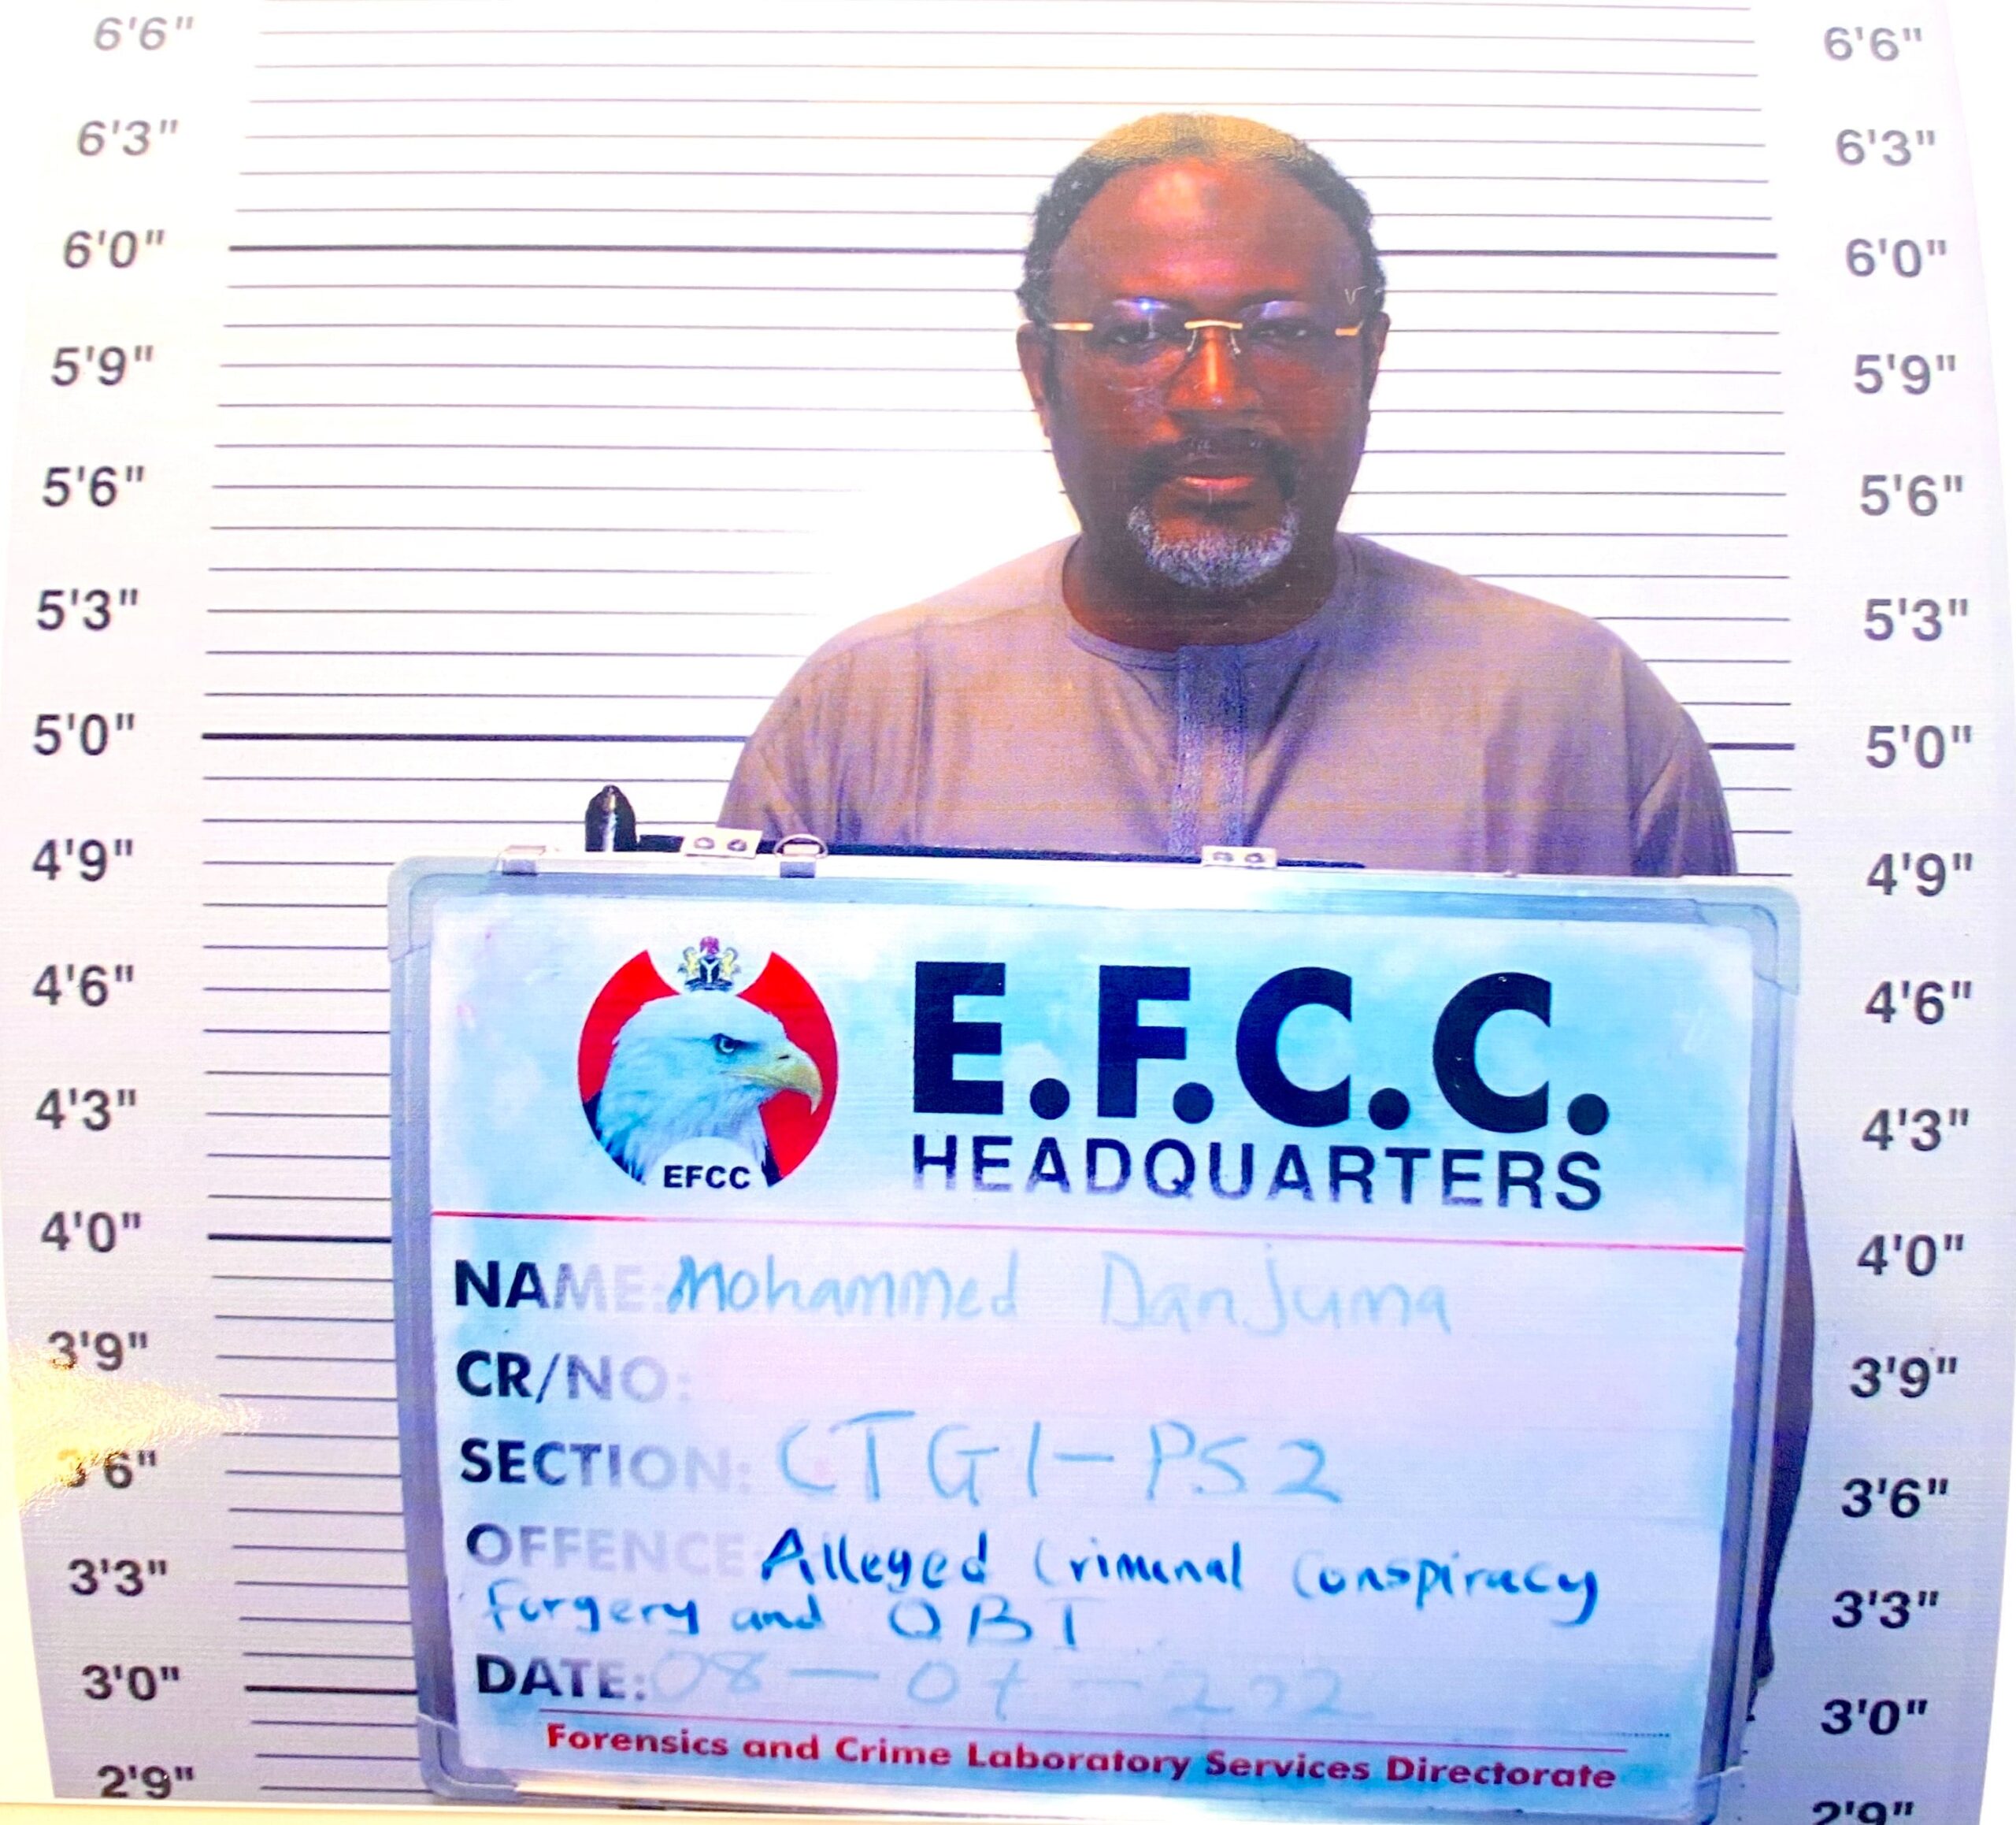 6'6" 6'6"
6'3" 6'3"
6'0" 6'0"
5'9" 5'9"
5'6" 5'6"
5'3" 5'3"
5'0" 5'0"
4'9" 4'9"
4'6" 4'6"
4'3" 4'3"
4'0" 4'0"
3'9" 3'9"
3'6" 3'6"
3'3" 3'3"
3'0" 3'0"
2'9" 2'9"
EFCC
E.F.C.C.
HEADQUARTERS
NAME: Mohammed Danjuma
CR/NO:
SECTION: CTGI-PS2
OFFENCE Alleged Criminal Conspiracy
Forgery and OBT
DATE: 08
Forensics and Crime Laboratory Services Directorate